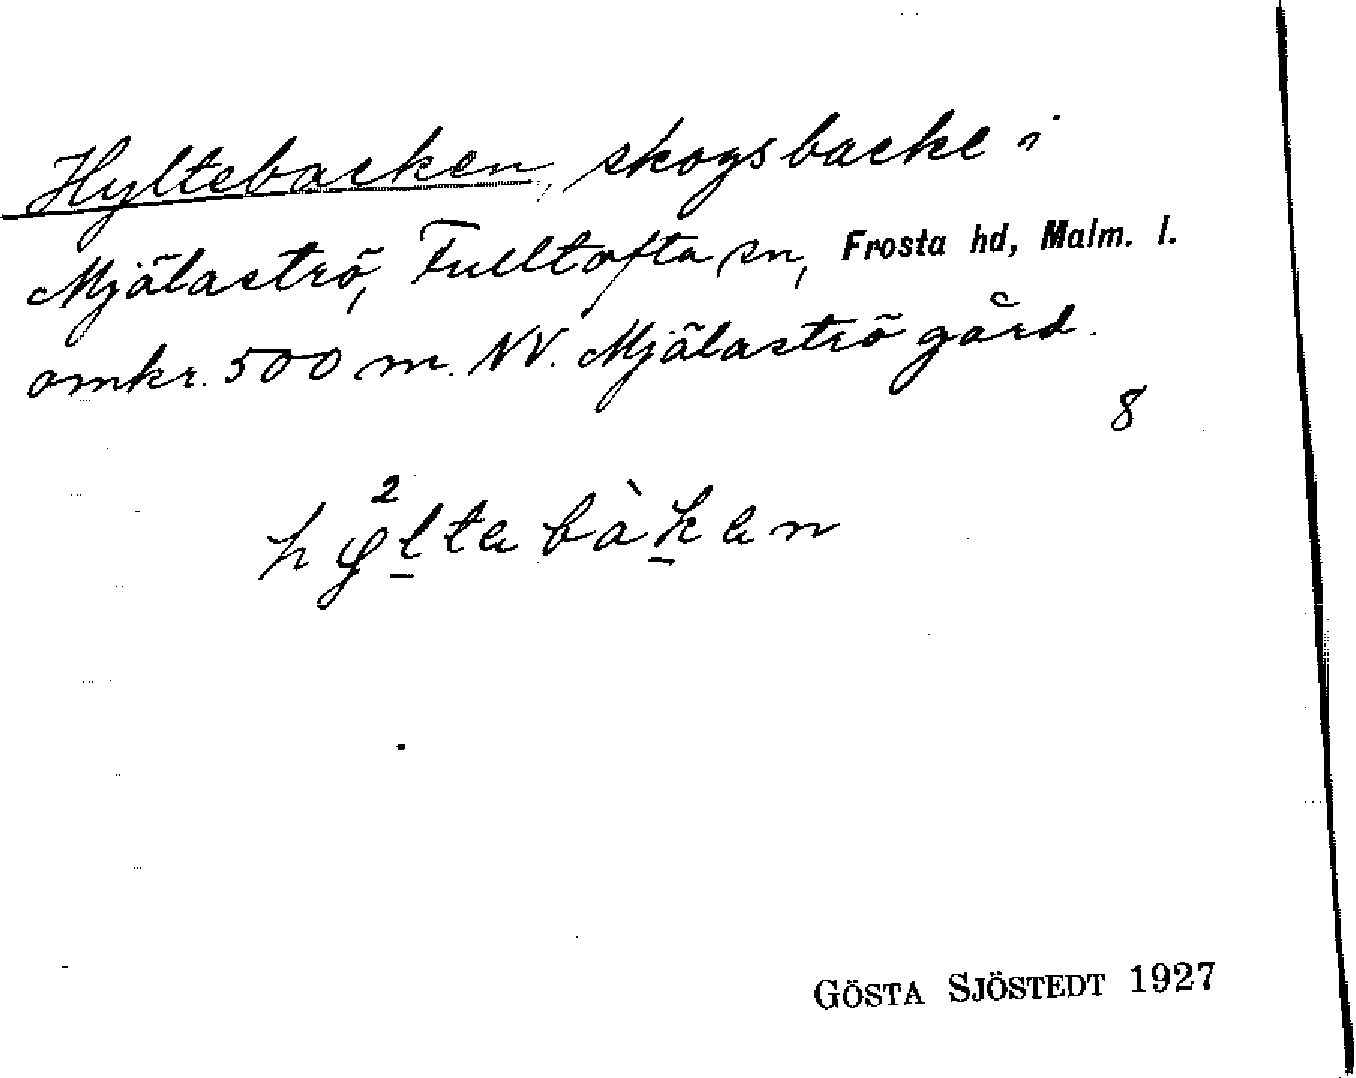 Hyltebacken, skogsbacke i
Mjälaströ, Fulltofta sn, Frosta hd, Malm. l.
omkr. 500 m. NV. Mjälaströ gård.
8
GÖSTA SJÖSTEDT 1927